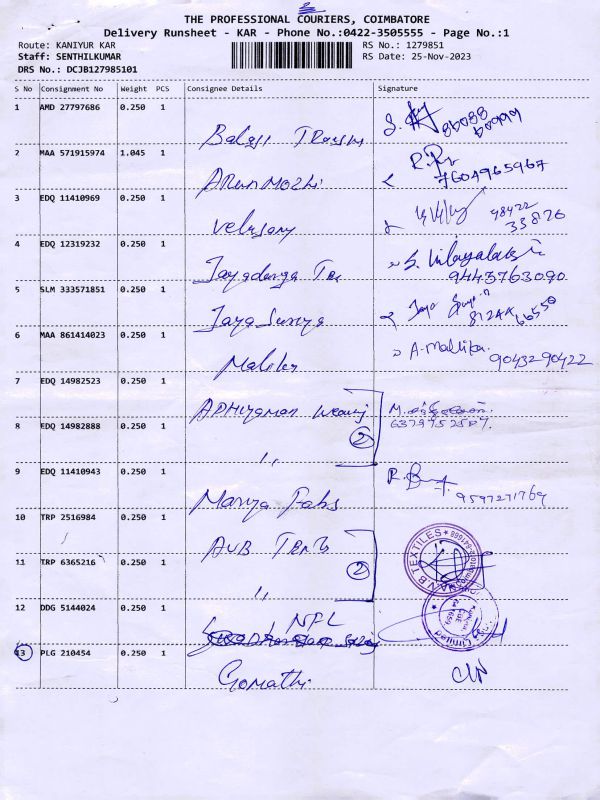 THE PROFESSIONAL COURIERS, COIMBATORE
Delivery Runsheet - KAR - Phone No.:0422-3505555 - Page No.:1
Route: KANIYUR KAR
RS No.: 1279851
Staff: SENTHILKUMAR
RS Date: 25-Nov-2023
DRS No.: DCJB127985101
S No Consignment No Weight PCS Consignee Details Signature
1 AMD 27797686 0.250 1
Balaji
2 MAA 571915974 1.045 1
7604965967
ARUN MOZHI
3 EDQ 11410969 0.250 1
98422
33826
Velusamy
4 EDQ 12319232 0.250 1
S. Vijayalakshmi
9443763090
Jayadurga Tex
5 SLM 333571851 0.250 1
Jaya Suriya
6 MAA 861414023 0.250 1
A. Mallika.
9043290422
Malika
7 EDQ 14982523 0.250 1
ADHIYAMAN
8 EDQ 14982888 0.250 1
2
,,
9 EDQ 11410943 0.250 1
9597271769
Mariya Fabs
10 TRP 2516984 0.250 1
AVB
11 TRP 6365216 0.250 1
2
V.B TEXTILES
,,
12 DDG 5144024 0.250 1
NFL
Limited
13 PLG 210454 0.250 1
Gomathi